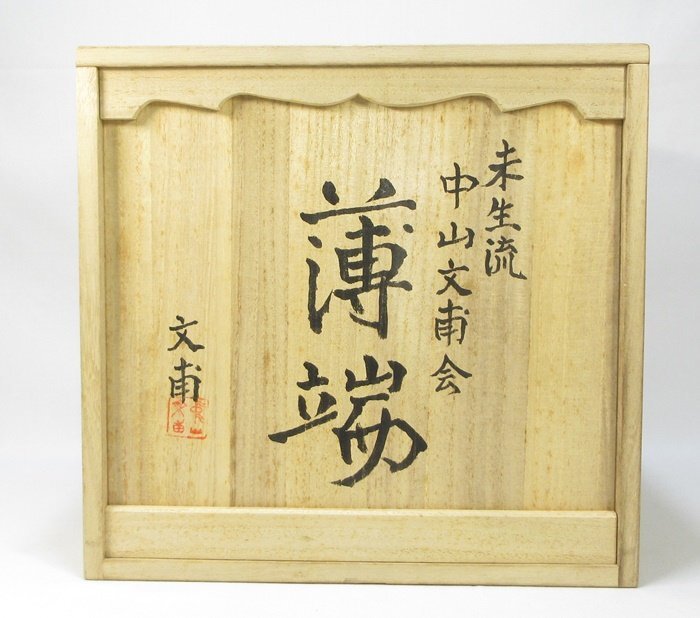 未生流
中山文甫会
薄端
文甫